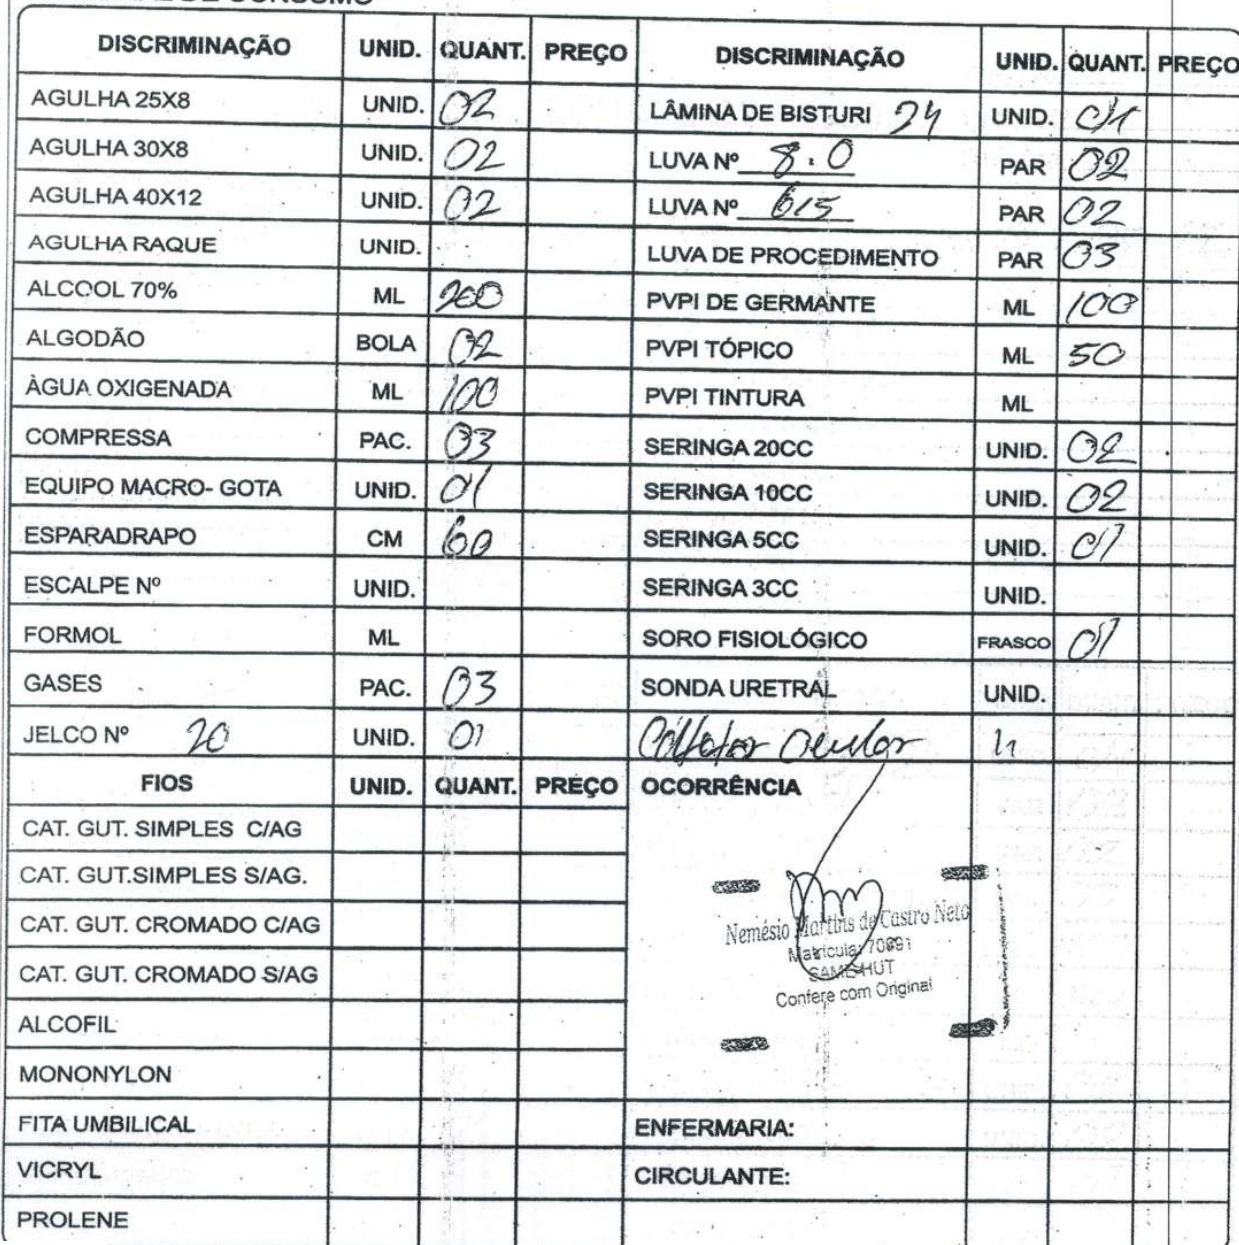 DISCRIMINAÇÃO UNID. QUANT. PREÇO DISCRIMINAÇÃO UNID. QUANT. PREÇO
AGULHA 25X8 UNID. 02 LÂMINA DE BISTURI 24 UNID. 01
AGULHA 30X8 UNID. 02 LUVA Nº 8.0 PAR 02
AGULHA 40X12 UNID. 02 LUVA Nº 6,5 PAR 02
AGULHA RAQUE UNID. LUVA DE PROCEDIMENTO PAR 03
ALCOOL 70% ML 200 PVPI DE GERMANTE ML 100
ALGODÃO BOLA 02 PVPI TÓPICO ML 50
ÀGUA OXIGENADA ML 100 PVPI TINTURA ML
COMPRESSA PAC. 03 SERINGA 20CC UNID. 02
EQUIPO MACRO- GOTA UNID. 01 SERINGA 10CC UNID. 02
ESPARADRAPO CM 60 SERINGA 5CC UNID. 01
ESCALPE Nº UNID. SERINGA 3CC UNID.
FORMOL ML SORO FISIOLÓGICO FRASCO 01
GASES PAC. 03 SONDA URETRAL UNID.
JELCO Nº 20 UNID. 01
FIOS UNID. QUANT. PREÇO OCORRÊNCIA
CAT. GUT. SIMPLES C/AG
CAT. GUT.SIMPLES S/AG.
CAT. GUT. CROMADO C/AG
CAT. GUT. CROMADO S/AG
Nemésio Martins de Castro Neto
Matrícula: 70691
SAME-HUT
Confere com Original
ALCOFIL
MONONYLON
FITA UMBILICAL ENFERMARIA:
VICRYL CIRCULANTE:
PROLENE